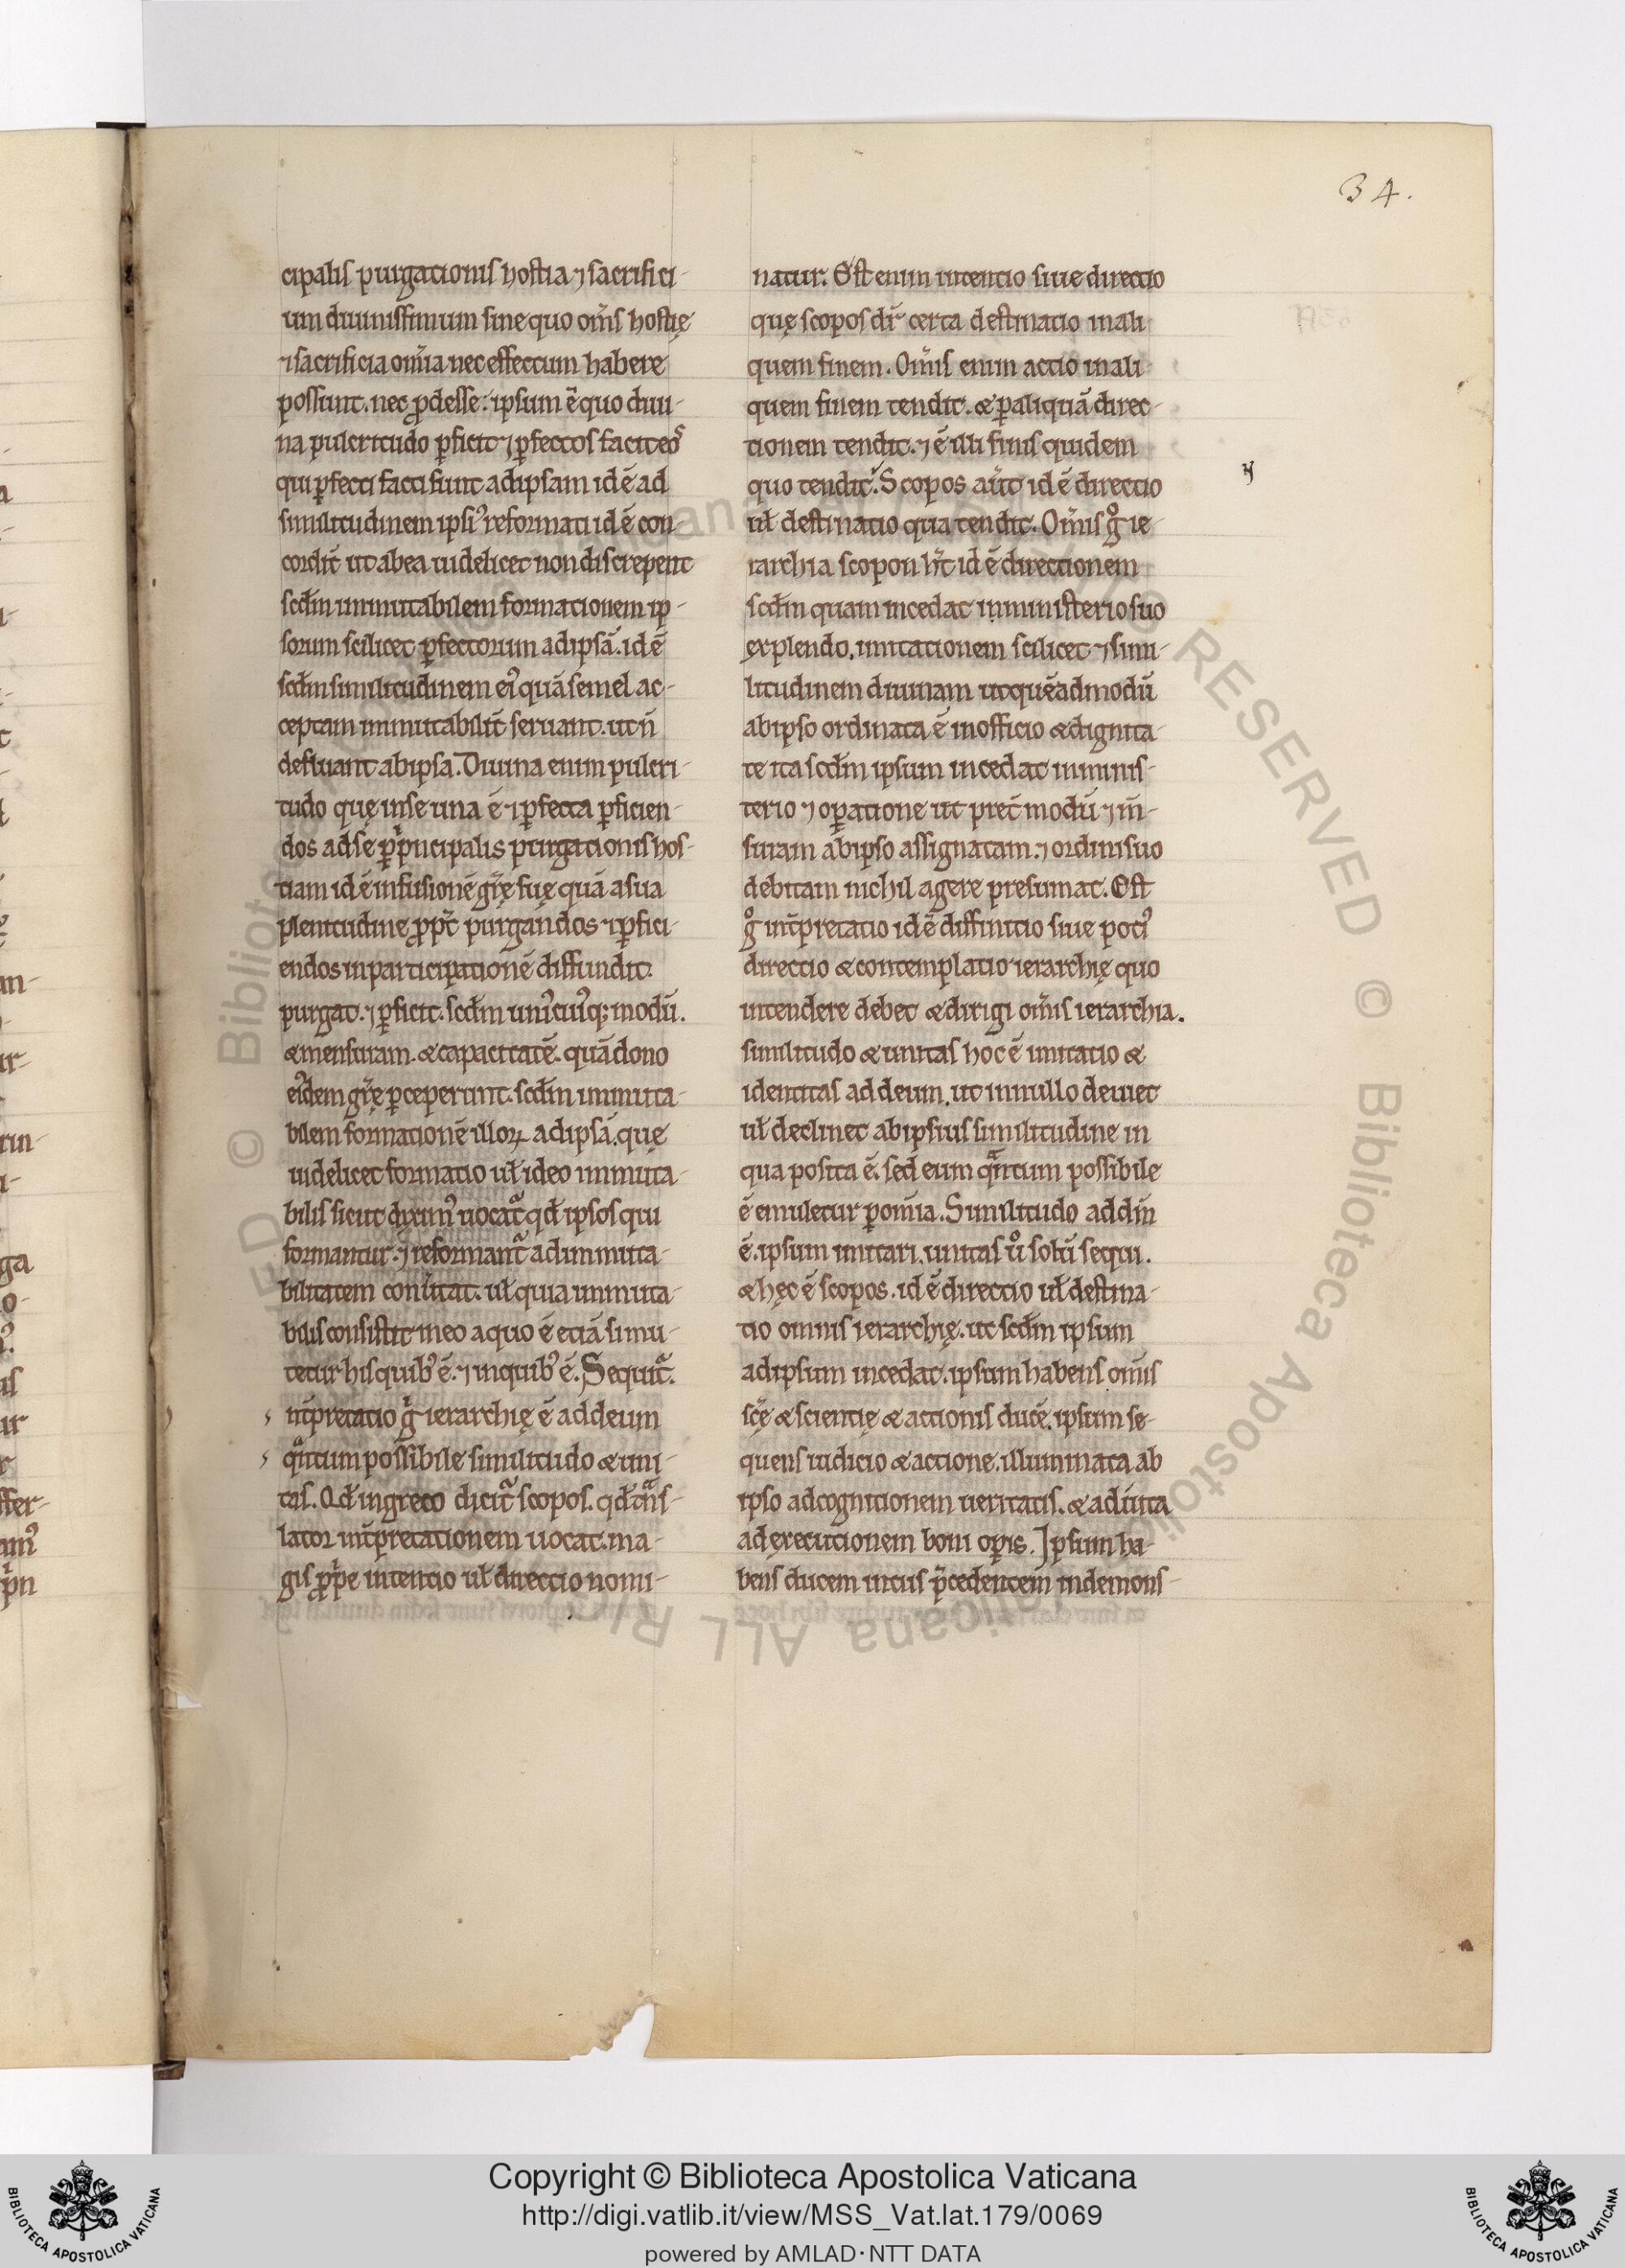 34.
cipalis purgationis hostia ⁊ sacrifici-
um diuinissimum sine quo om̅s hostię
⁊ sacrificia om̅ia nec effectum habere
possunt. nec ꝓdesse. ipsum ē quo diui-
na pulcritudo ꝑficit ⁊ ꝑfectos facit eos
qui ꝑfecti facti sunt ad ipsam id ē ad
similitudinem ipsiꝰ reformati id ē con-
cordit̄ ut ab ea uidelicet non discrepent
scdm̄ inmutabilem formationem ip-
sorum scilicet ꝑfectorum ad ipsā. id ē
scdm̄ similitudinem eiꝰ quā semel ac-
ceptam inmutabilit̄ seruant. ut n̄
defluant ab ipsa. Diuina enim pulcri-
tudo quę in se una ē ⁊ ꝑfecta ꝑficien-
dos ad se ꝑ pⁱncipalis purgationis hos-
tiam id ē infusionē gr̄ę suę quā a sua
plenitudine ꝓpt̄ purgandos ⁊ ꝑfici-
endos in participationē diffundit.
purgat. ⁊ ꝑficit. scdm̄ uniꝰcuiꝰqꝫ modū.
& mensuram. & capacitatē. quā dono
eiꝰdem gr̄ę ꝑceperunt. scdm̄ inmuta-
bilem formationē illoꝝ ad ipsā. quę
uidelicet formatio uł ideo inmuta-
bilis sicut diximꝰ uocat᷑ qd̄ ipsos qui
formantur. ⁊ reformant᷑ ad inmuta-
bilitatem conūtat. uł quia inmuta-
bilis consistit in eo a quo ē etiā si mu-
tetur his quibꝰ ē. ⁊ in quibꝰ ē. Sequit᷑.
int̄pretatio gⁱ ierarchię ē ad deum
qⁿtum possibile similitudo & uni-
tas. Qd̄ in greco dicit᷑ scopos. qd̄ tⁿs-
lator int̄pretationem uocat. ma-
gis ꝓpⁱe intentio uł directio nomi-
natur. Est enim intentio siue directio
quę scopos dr̄ certa destinatio in ali
quem finem. Om̅is enim actio in ali-
quem finem tendit. & ꝑ aliquā direc-
tionem tendit. ⁊ ē illi finis quidem
quo tendit. Scopos aūt id ē directio
uł destinatio qua tendit. Om̅is gͦ ie-
rarchia scopon h̄t id ē directionem
scdm̄ quam incedat in ministerio suo
explendo. imitationem scilicet ⁊ simi-
litudinem diuinam ut quēadmodū
ab ipso ordinata ē in officio & dignita-
te ita scdm̄ ipsum incedat in minis-
terio ⁊ oꝑatione ut pret̄ modū ⁊ m̄-
suram ab ipso assignatam. ⁊ ordini suo
debitam nichil agere presumat. Est
gͦ int̄pretatio id ē diffinitio siue potiꝰ
directio & contemplatio ierarchię quo
intendere debet & dirigi om̅is ierarchia.
similitudo & unitas hoc ē imitatio &
identitas ad deum. ut in nullo deuiet
uł declinet ab ipsius similitudine in
qua posita ē. sed eum qⁿtum possibile
ē emuletur ꝑ om̅ia. Similitudo ad dm̄
ē. ipsum imitari. unitas uͦ solū sequi.
& hęc ē scopos. id ē directio uł destina-
tio omnis ierarchię. ut scdm̄ ipsum
ad ipsum incedat. ipsum habens om̅is
sc̄ę & scientię & actionis ducē. ipsum se-
quens iudicio & actione. illuminata ab
ipso ad cognitionem ueritatis. & adiuta
ad executionem boni oꝑis. Ipsum ha-
bens ducem intus p̄cedentem in demons-
Copyright © Biblioteca Apostolica Vaticana
http://digi.vatlib.it/view/MSS_Vat.lat.179/0069
powered by AMLAD·NTT DATA
BIBLIOTECA APOSTOLICA VATICANA
BIBLIOTECA APOSTOLICA VATICANA